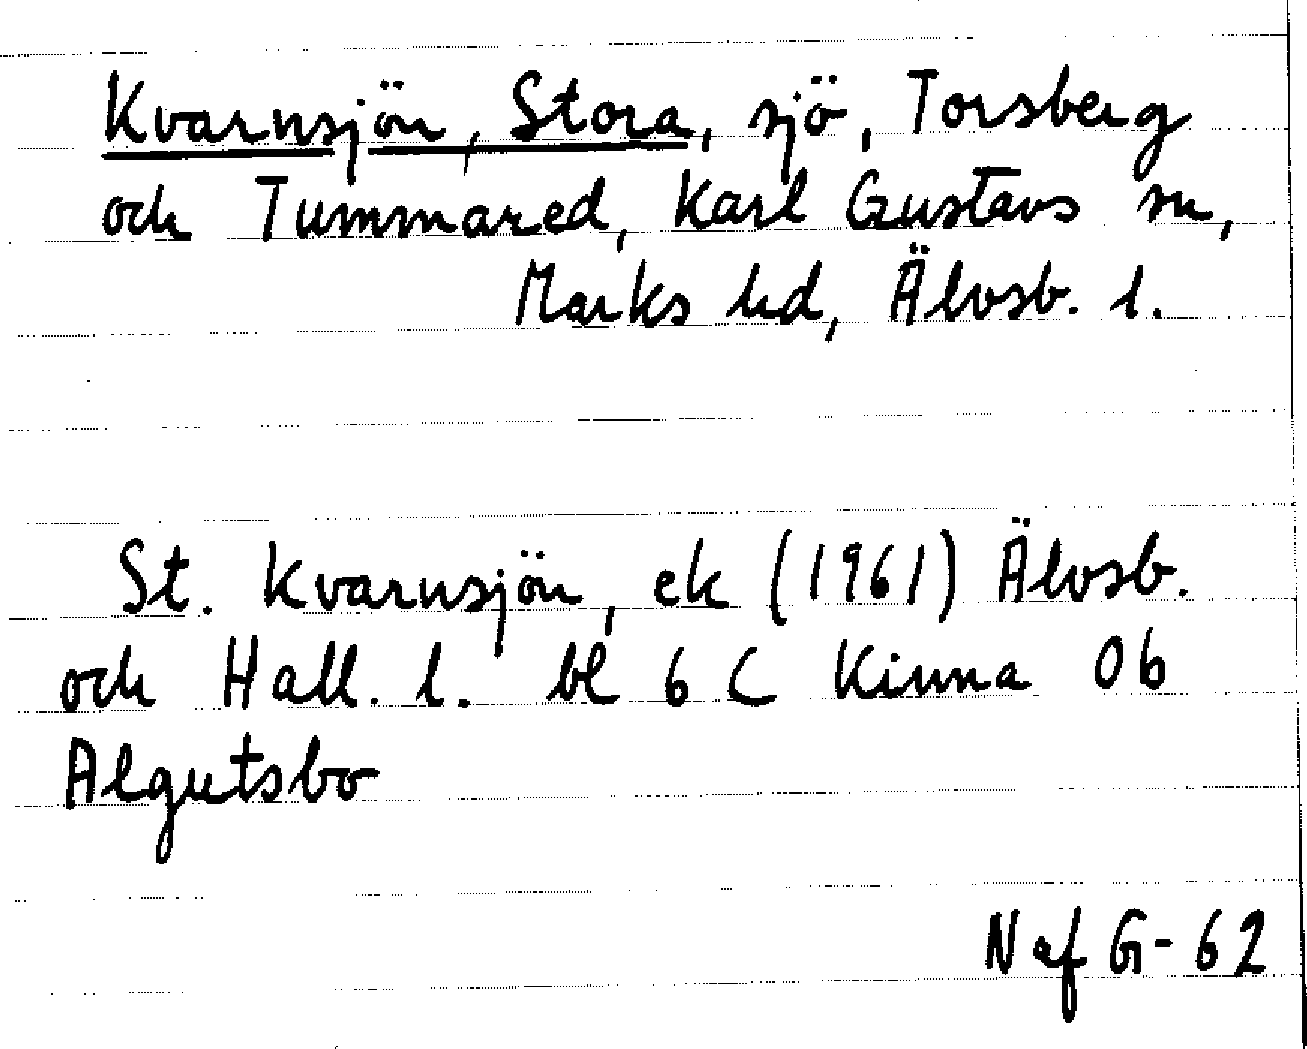 Kvarnsjön, Stora, sjö, Torsberg
och Tummared, Karl Gustavs sn,
Marks hd, Älvsb. l.
St. Kvarnsjön, ek (1961) Älvsb.
och Hall. l. bl 6 C Kinna 0b
Algutsbo
N af G-62